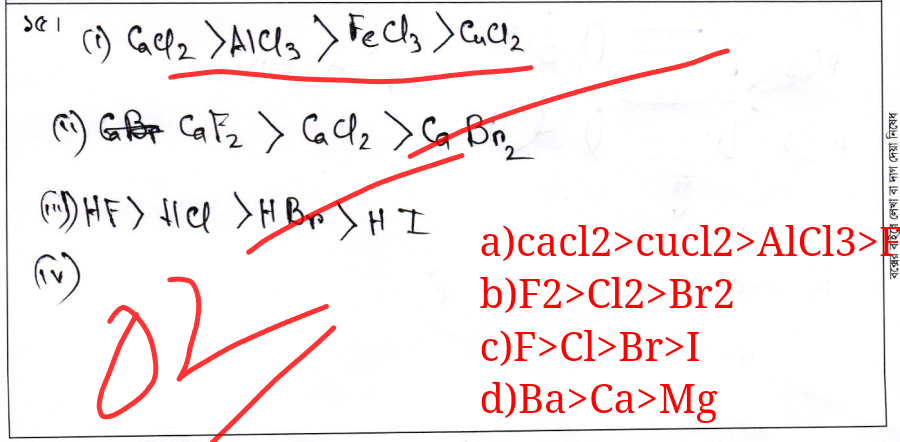 ১৫।
(i) CaCl2 > AlCl3 > FeCl3 > CuCl2
(ii) CaF2 > CaCl2 > CaBr2
(iii) HF > HCl > HBr > HI
(iv)
02
a)cacl2>cucl2>AlCl3>F
b)F2>Cl2>Br2
c)F>Cl>Br>I
d)Ba>Ca>Mg
বক্সের বাইরে লেখা বা দাগ দেয়া নিষেধ